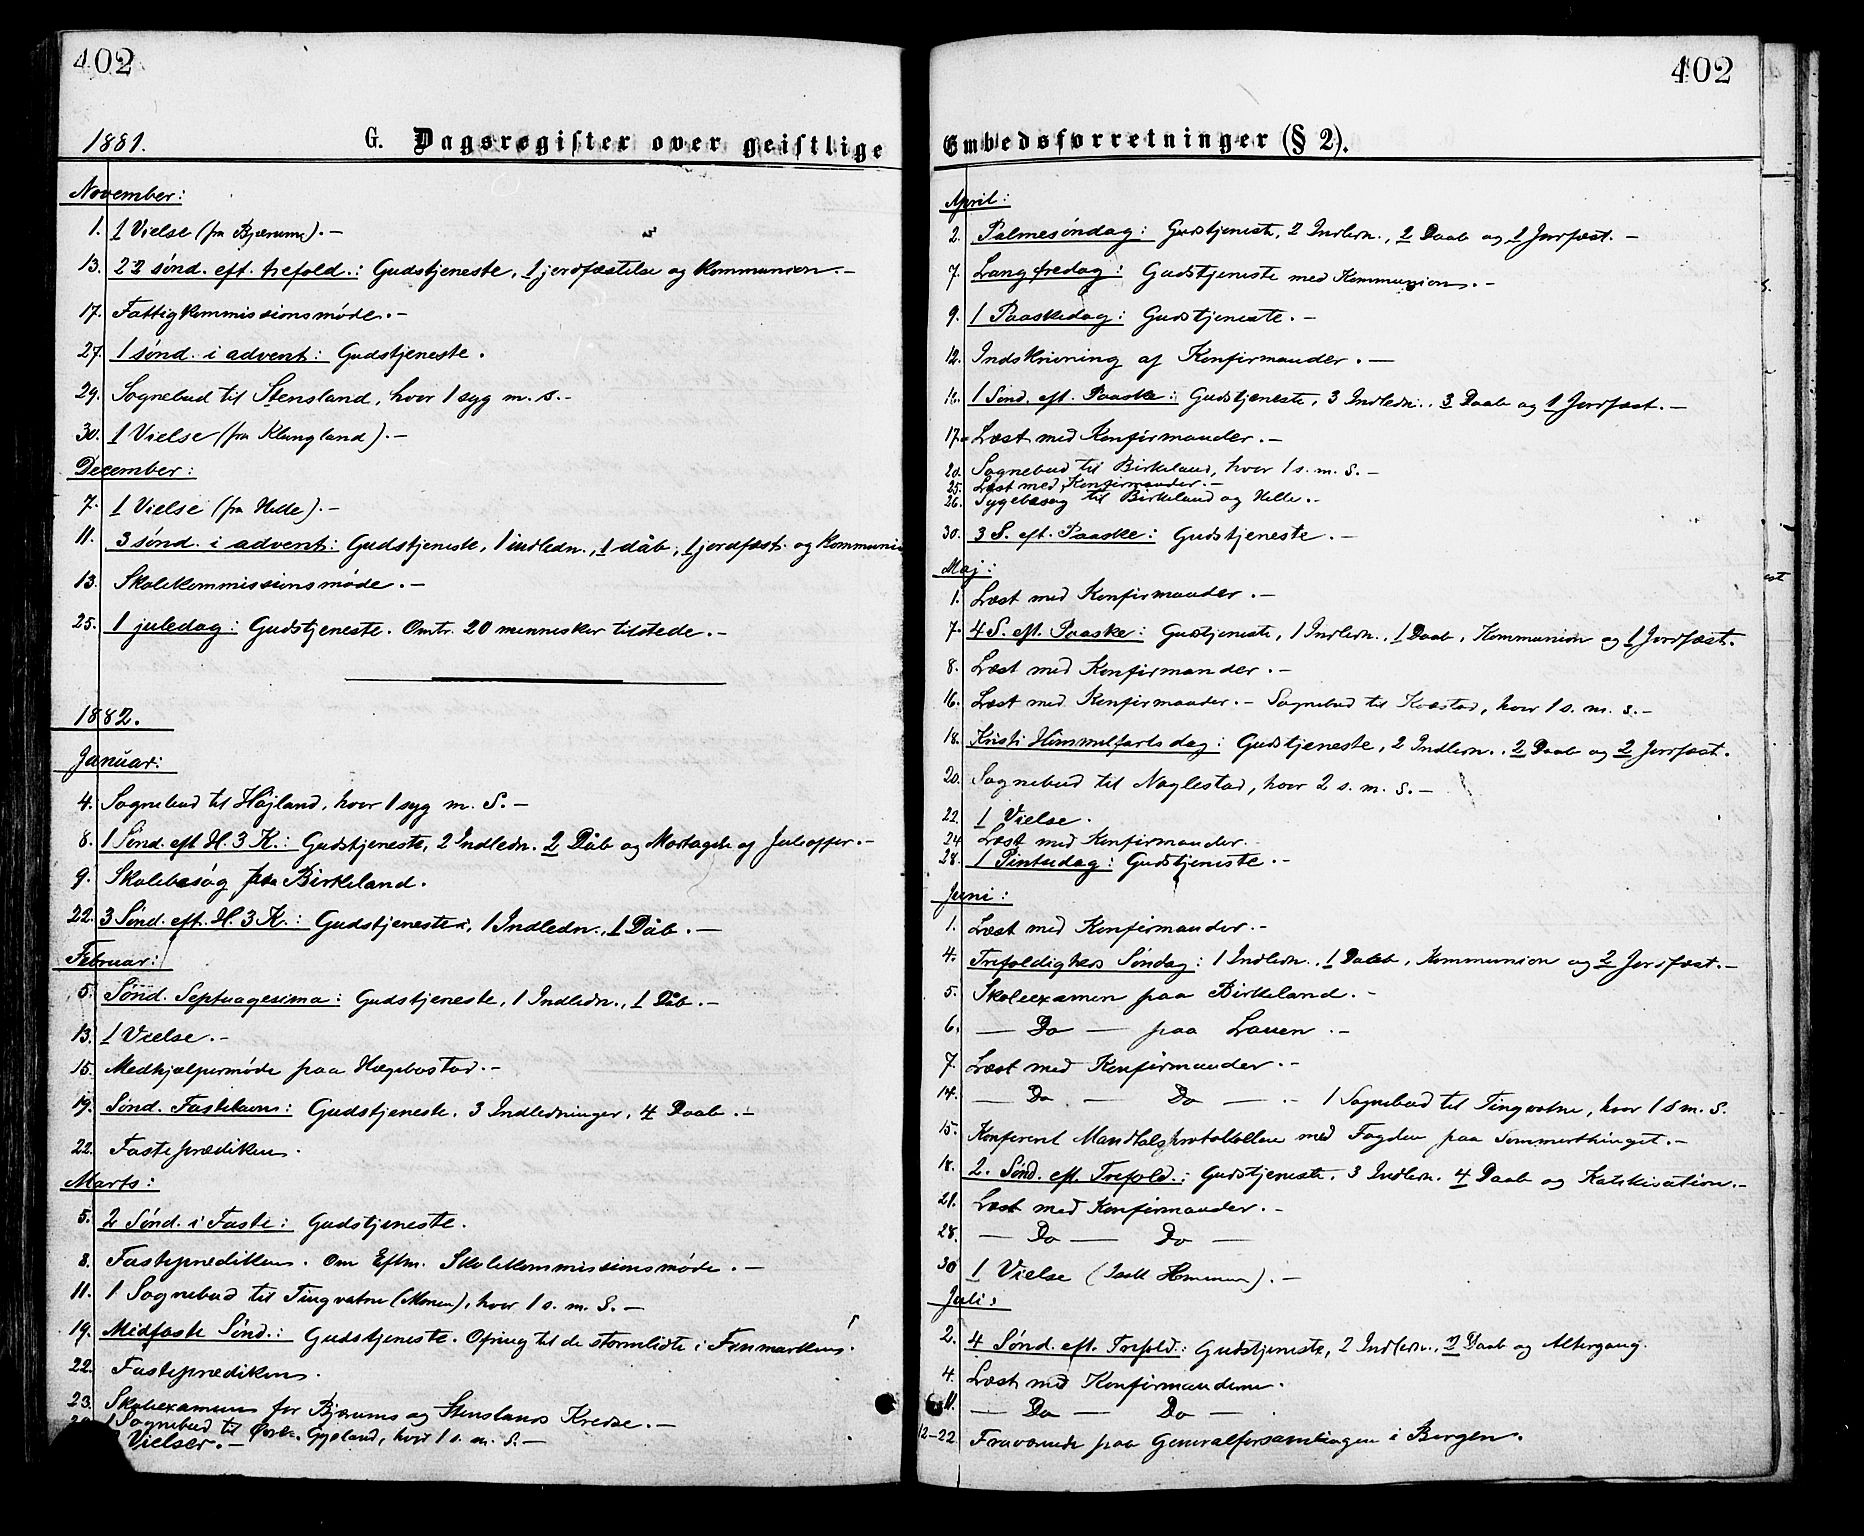 402
1881.
G. Dagsregister over geistlige
November:
1. 1 Vielse (fra Bjærum). —
13. 22 sønd. eft. trefold.: Gudstjeneste, 1 jordfæstelse og kommunion. —
17. Fattigkommissionsmøde. —
27. 1 sønd. i advent: Gudstjeneste.
29. Sognebud til Stensland, hvor 1 syg m. s. —
30. 1 Vielse (fra Klungland). —
December:
7. 1 Vielse (fra Helle). —
11. 3 sønd. i advent: Gudstjeneste, 1 indledn., 1 dåb, 1 jordfæst. og kommuni
13. Skolekommissionsmøde. —
25. 1 juledag: Gudstjeneste. Omtr. 20 mennesker tilstede. —
1882.
Januar:
4. Sognebud til Højland, hvor 1 syg m. S. —
8. 1 Sønd. eft. H. 3 K.: Gudstjeneste, 2 Indledn. 2 Dåb og Mortagelse af Juleoffer. —
9. Skolebesøg paa Birkeland.
22. 3 Sønd. eft. H. 3 K.: Gudstjeneste, 1 Indledn., 1 Dåb. —
Februar:
5. Sønd. Septuagesima: Gudstjeneste, 1 Indledn., 1 Dåb. —
13. 1 Vielse. —
15. Medhjælpermøde paa Hægebostad. —
19. Sønd. Fastelavn: Gudstjeneste, 3 Indledninger, 4 Daab. —
22. Fasteprædiken.
Marts:
5. 2 Sønd. i Faste: Gudstjeneste.
8. Fasteprædiken. Om Eftm. Skolekommissionsmøde. —
11. 1 Sognebud til Tingvatne (Monen), hvor 1 s. m. S. —
19. Midfaste Sønd.: Gudstjeneste. Ofring til de stormlidte i Finmarken.
22. Fasteprædiken.
23. Skoleexamen for Bjærums og Stenslands Kredse. —
1 Sognebud til Gyeland, hvor 1 s. m. S. —
Vielser. —
402
Embedsforretninger (§ 2).
April:
2. Palmesøndag: Gudstjeneste, 2 Indledn., 2 Daab og 1 Jordfæst. —
7. Langfredag: Gudstjeneste med Kommunion. —
9. 1 Paaskedag: Gudstjeneste. —
12. Indskrivning af Konfirmander. —
1 Sønd. eft. Paaske: Gudstjeneste, 3 Indledn., 3 Daab og 1 Jordfæst. —
17. Læst med Konfirmander. —
20. Sognebud til Birkeland, hvor 1 s. m. S. —
25. Læst med Konfirmander. —
26. Sygebesøg til Birkeland og Helle. —
30. 3 S. eft. Paaske: Gudstjeneste. —
Maj:
1. Læst med Konfirmander. —
7. 4 S. eft. Paaske: Gudstjeneste, 1 Indledn., 1 Daab, Kommunion og 1 Jordfæst.
8. Læst med Konfirmander. —
16. Læst med Konfirmander. — Sognebud til Kvæstad, hvor 1 s. m. s. —
18. Kristi Himmelfartsdag: Gudstjeneste, 2 Indledn., 2 Daab og 2 Jordfæst.
20. Sognebud til Naglestad, hvor 2 s. m. s. —
22. 1 Vielse.
24. Læst med Konfirmander.
28. 1 Pintsedag: Gudstjeneste. —
Juni:
1. Læst med Konfirmander. —
4. Trefoldigheds Søndag: 1 Indledn., 1 Daab, Kommunion og 2 Jordfæst. —
5. Skoleexamen paa Birkeland. —
6. — Do — paa Lauen. —
7. Læst med Konfirmander. —
14. — Do — Do — — 1 Sognebud til Tingvatne, hvor 1 S m. S.
15. Konfereret Mandtalsprotokollen med Fogden paa Sommerthinget. —
18. 2. Sønd. eft. Trefold.: Gudstjeneste, 3 Indledn. 4 Daab og Katekisation. —
21. Læst med Konfirmander. —
28. — Do — Do —
30 1 Vielse ( ). —
Juli:
2. 4 Sønd. eft. Trefold.: Gudstjeneste, 2 Indledn., 2 Daab og Altergang.
4. Læst med Konfirmanderne.
11. — Do — Do —
12-22 Fraværende paa Generalforsamlingen i Bergen.